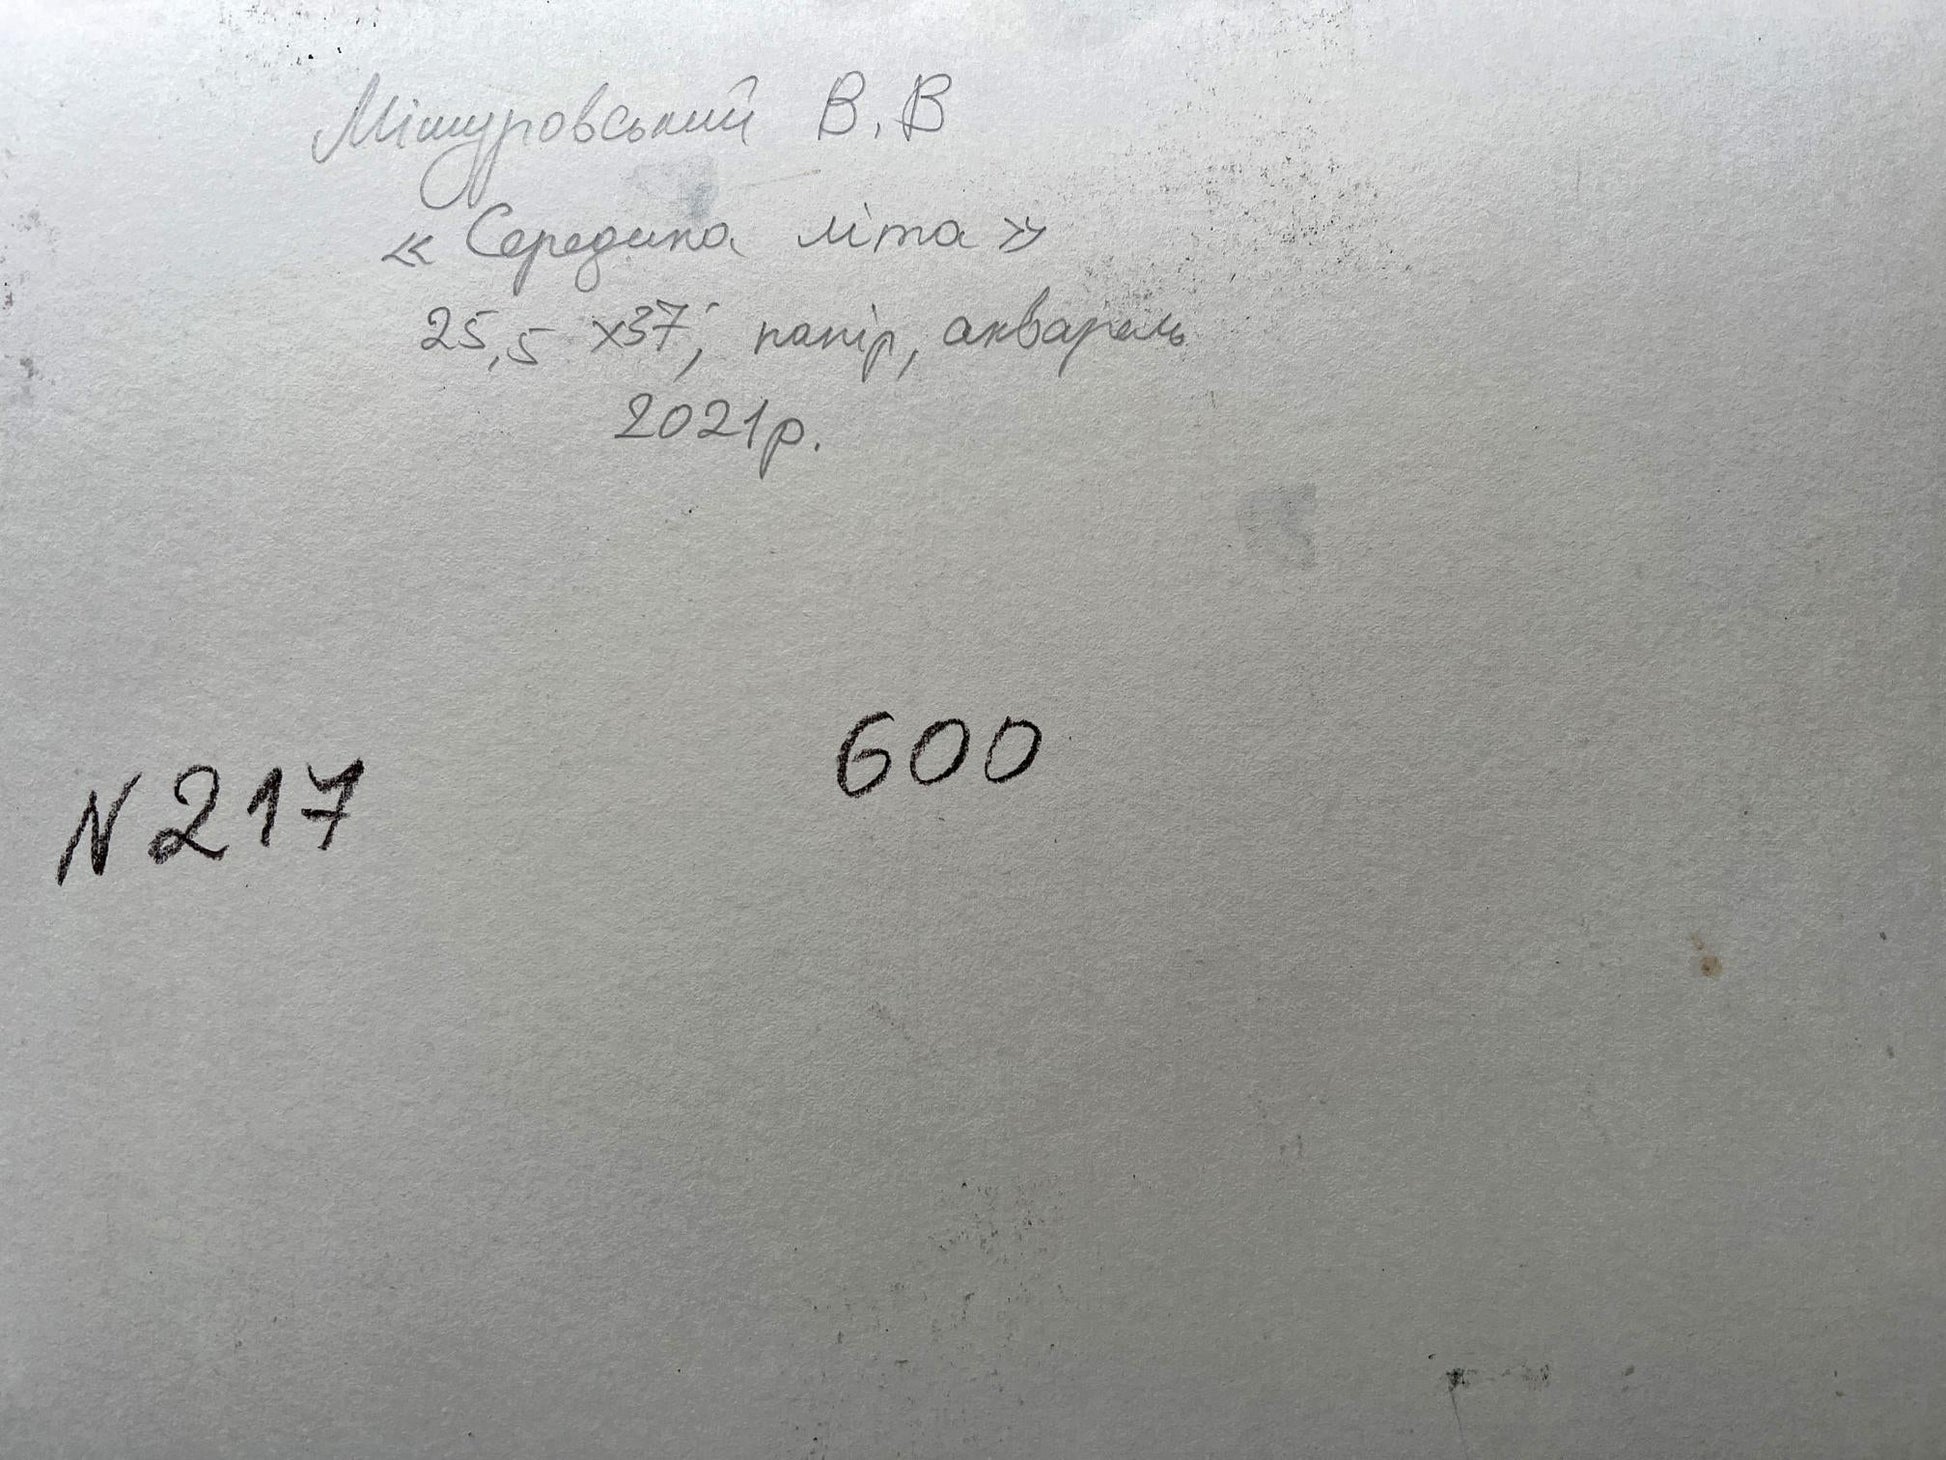 Мішуровський В.В
«Середина літа»
25,5 х37; папір, акварель
2021р.
600
N 217